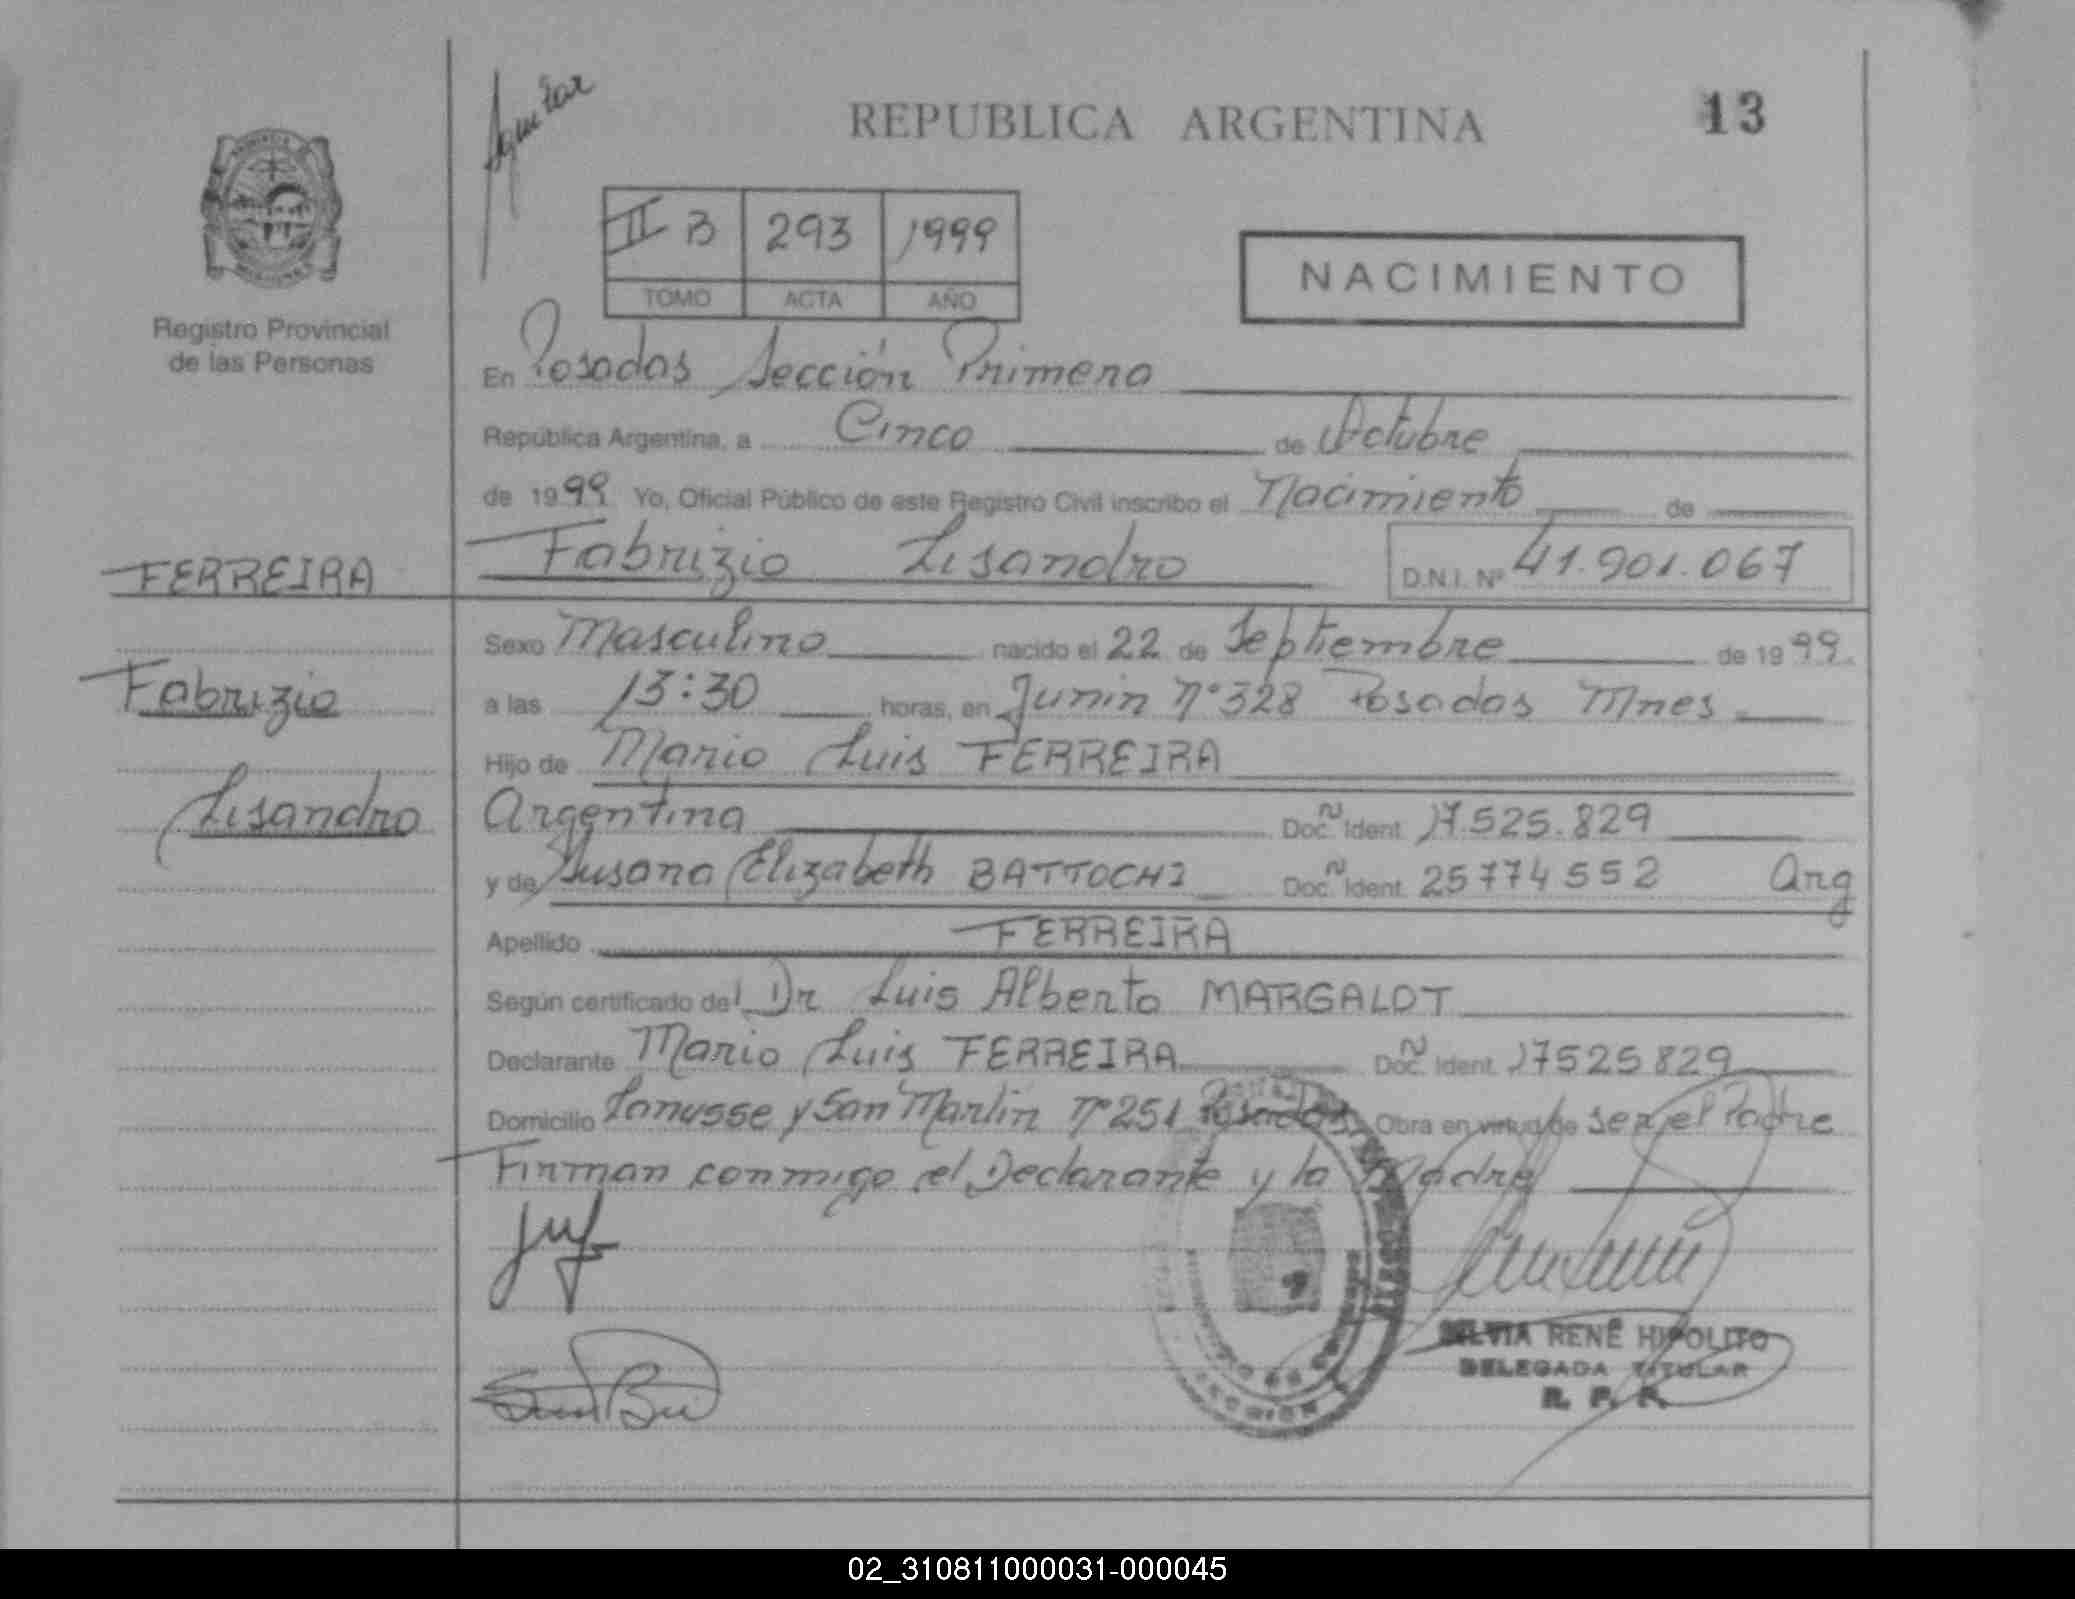 Aguilar
REPUBLICA ARGENTINA
13
II B 293 1999
TOMO ACTA AÑO
NACIMIENTO
Registro Provincial
de las Personas
En Posadas Sección Primera
República Argentina, a Cinco de Octubre
de 1999 Yo, Oficial Público de este Registro Civil inscribo el Nacimiento de
FERREIRA
Fabrizio Lisandro D.N.I. Nº 41.901.067
Sexo Masculino nacido el 22 de Septiembre de 1999
Fabrizio
a las 13:30 horas, en Junin Nº 328 Posadas Mnes
Hijo de Mario Luis FERREIRA
Lisandro
Argentina Doc. N Ident. 17.525.829
y de Susana Elizabeth BATTOCHI Doc. N Ident. 25774552 Arg
Apellido FERREIRA
Según certificado del Dr Luis Alberto MARGALOT
Declarante Mario Luis FERREIRA Doc. N Ident. 17525829
Domicilio Lanusse y San Martin Nº 251 Posadas Obra en virtud de ser el Padre
Firman conmigo el Declarante y la Madre
SILVIA RENÉ HIPOLITO
DELEGADA TITULAR
R. P. P.
02_310811000031-000045